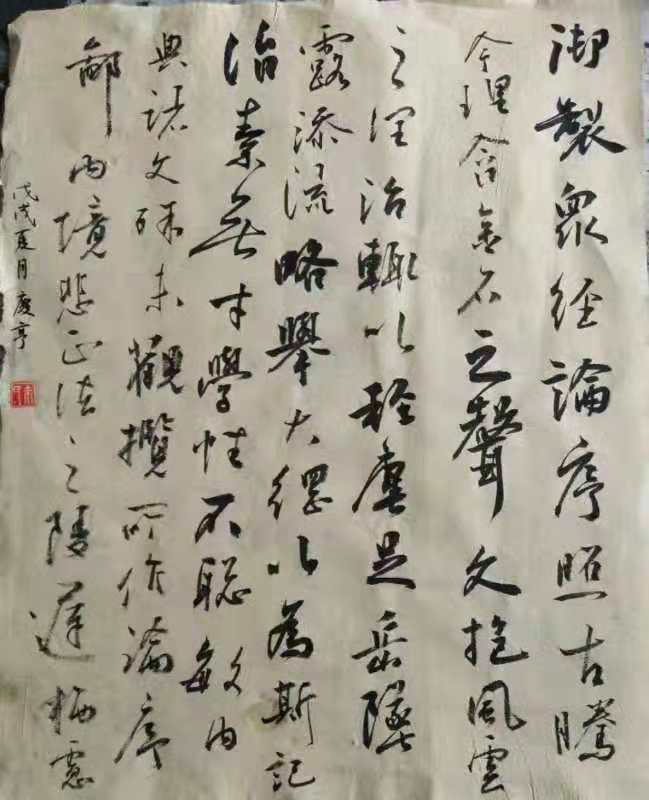 御製眾经論序照古騰
今理含金石之聲文抱風雲
之润治輒以轻塵足岳墜
露添流略舉大綱以為斯記
治素無才學性不聪敏内
典諸文殊未觀攬所作論序
鄙内境悲正法之陵遲栖慮
戊戌夏月慶亨